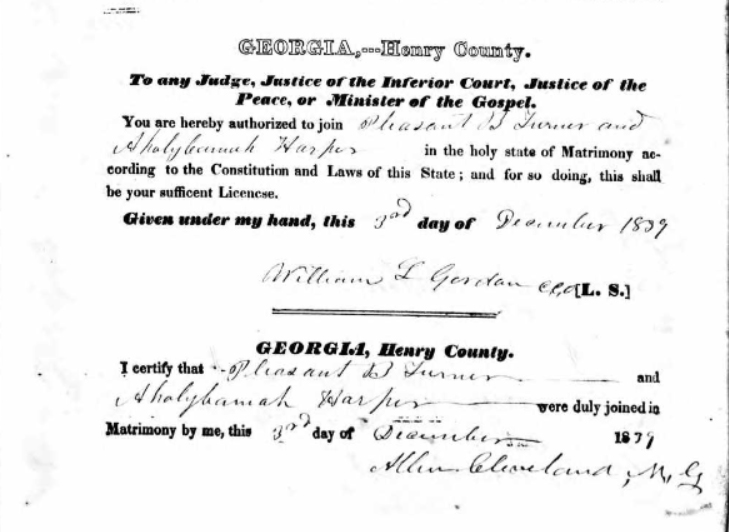 GEORGIA,---Henry County.
To any Judge, Justice of the Inferior Court, Justice of the
Peace, or Minister of the Gospel.
You are hereby authorized to join Pleasant B Turner and
Aholybamah Harper in the holy state of Matrimony ac-
cording to the Constitution and Laws of this State; and for so doing, this shall
be your sufficent Licencse.
Given under my hand, this 3rd day of December 1839
William L Gordan cco [L. S.]
GEORGIA, Henry County.
I certify that Pleasant B Turner and
Aholybamah Harper were duly joined in
Matrimony by me, this 3rd day of December 1839
Allen Cleveland, M. G